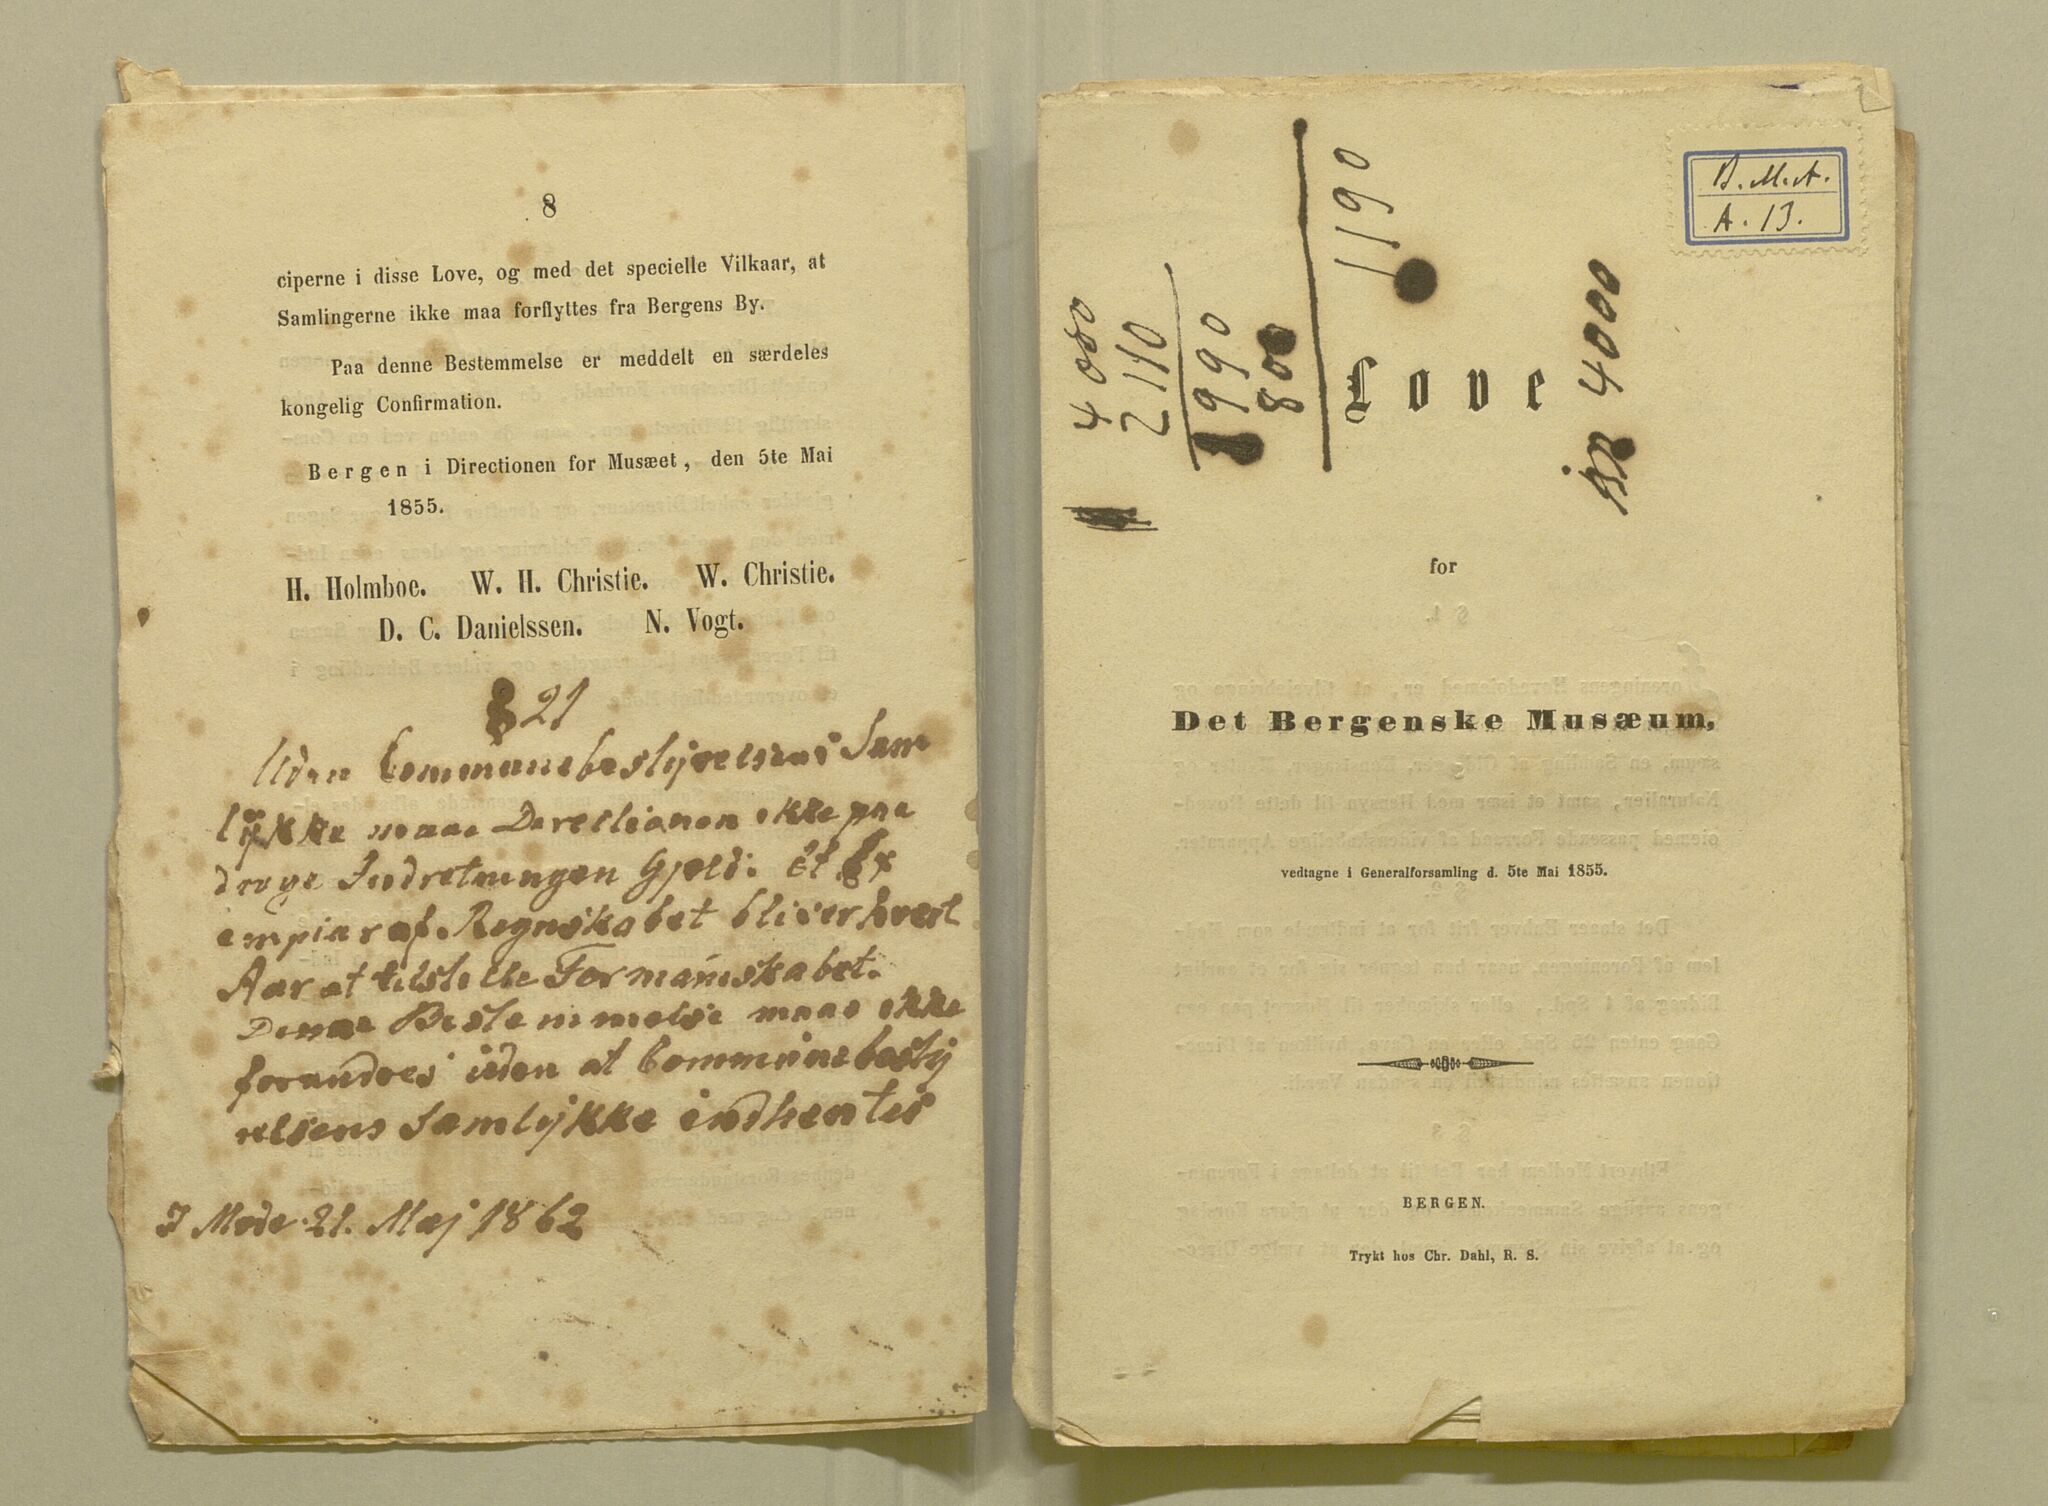 8
ciperne i disse Love, og med det specielle Vilkaar, at
Samlingerne ikke maa forflyttes fra Bergens By.
Paa denne Bestemmelse er meddelt en særdeles
kongelig Confirmation.
Bergen i Directionen for Musæet, den 5te Mai
1855.
H. Holmboe. W. H. Christie. W. Christie.
D. C. Danielssen. N. Vogt.
§ 21
Uden Communebestyrelsens Sam
tykke maae Directionen ikke paa
drage Indretningen Gjeld. Et Ex
emplar af Regnskabet bliver hvert
Aar at tilstille Formandskabet.
Denne Bestemmelse maae ikke
forandres uden at Communebesty
relsens Samtykke indhentes
I Møde 21. Maj 1862
B.M.A.
A. 13.
4080
2110
1990
800
1190
4000
Love
for
Det Bergenske Musæum,
vedtagne i Generalforsamling d. 5te Mai 1855.
BERGEN.
Trykt hos Chr. Dahl, R. S.